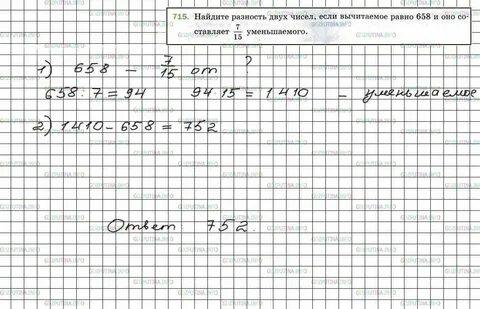 715. Найдите разность двух чисел, если вычитаемое равно 658 и оно со-
ставляет 7/15 уменьшаемого.
1) 658 – 7/15 от ?
658 : 7 = 94 94 · 15 = 1410 – уменьшаемое
2) 1410 – 658 = 752
Ответ 752.